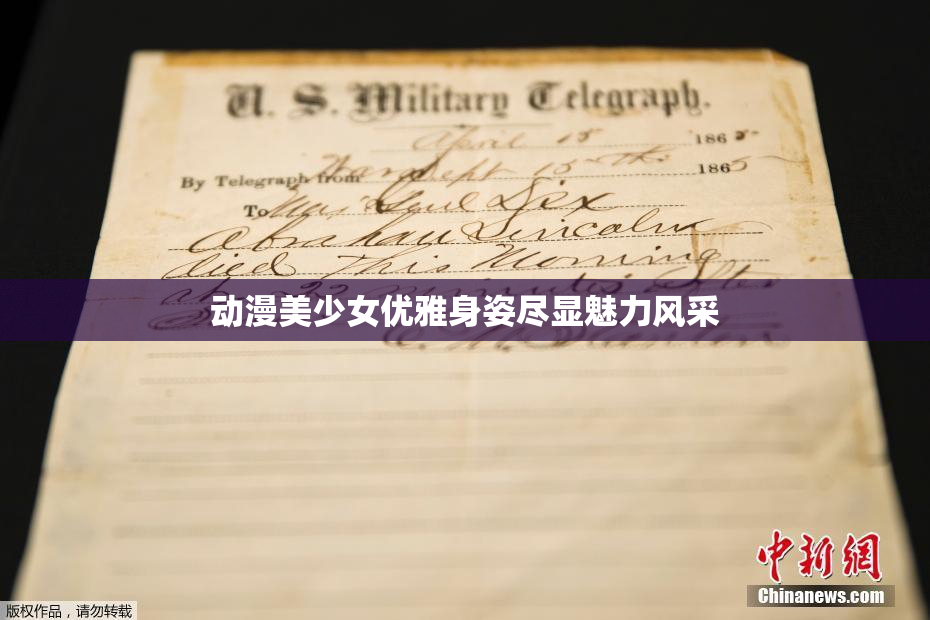 U. S. Military Telegraph.
April 15 1865
By Telegraph from War Dept 15th 1865
To Maj Genl Dix
Abraham Lincoln
died This Morning
at 22 minutes after
动漫美少女优雅身姿尽显魅力风采
E. M. Stanton
中新網
Chinanews.com
版权作品，请勿转载